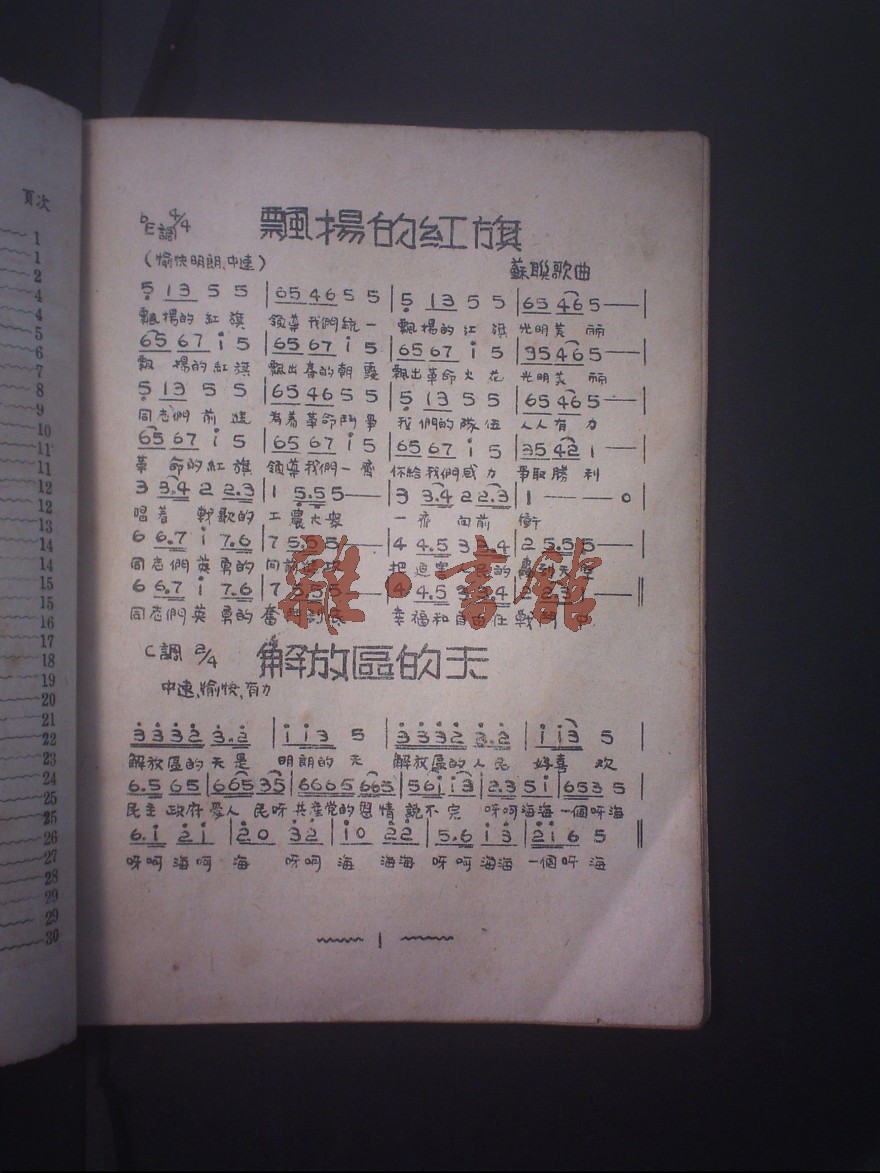 頁次
1
1
2
4
4
5
6
7
8
9
10
11
11
12
12
13
14
14
15
15
16
17
18
19
20
21
22
23
24
25
25
26
27
28
29
29
30
飄揚的紅旗
bE調 4/4
(愉快明朗、中速)
蘇聯歌曲
5 13 5 5 | 65 46 5 5 | 5 13 5 5 | 65 46 5 — — |
飄揚的紅旗 領導我們統一 飄揚的江旗 光明美丽
65 67 i 5 | 65 67 i 5 | 65 67 i 5 | 35 46 5 — — |
飄揚的紅旗 飄出春的朝霞 飄出革命火花 光明美丽
5 13 5 5 | 65 46 5 5 | 5 13 5 5 | 65 46 5 — — |
同志們前進 為着革命鬥爭 我們的隊伍 人人有力
65 67 i 5 | 65 67 i 5 | 65 67 i 5 | 35 42 1 — — |
革命的紅旗 領導我們一齊 你給我們威力 爭取勝利
3 3.4 2 2.3 | 1 5.5 5 — — | 3 3.4 2 2.3 | 1 — — 0 |
唱着戰歌的工農大眾 一齐向前衝
6 6.7 i 7.6 | 7 5.5 5 — — | 4 4.5 3 3.4 | 2 5.5 5 — — |
同志們英勇的向前 把迫害人民的
6 6.7 i 7.6 | 7 5.5 5 — — | 4 4.5 3 3.4 | 2 2.3 1 — — ‖
同志們英勇的奮 幸福和自由在戰鬥中
雜·書館
解放區的天
C調 2/4
中速,愉快,有力
3332 3.2 | i i3 5 | 3332 3.2 | i i3 5 |
解放區的天是 明朗的天 解放區的人民 好喜欢
6.5 65 | 665 35 | 6665 665 | 56i i3 | 2.3 5i | 653 5 |
民主政府爱人民呀共產党的恩情說不完 呀呵海海一個呀海
6.i 2i | 20 32 | i0 22 | 5.6 i3 | 2i6 5 ‖
呀呵海呵海 呀呵海 海海呀呵海海 一個呀海
1